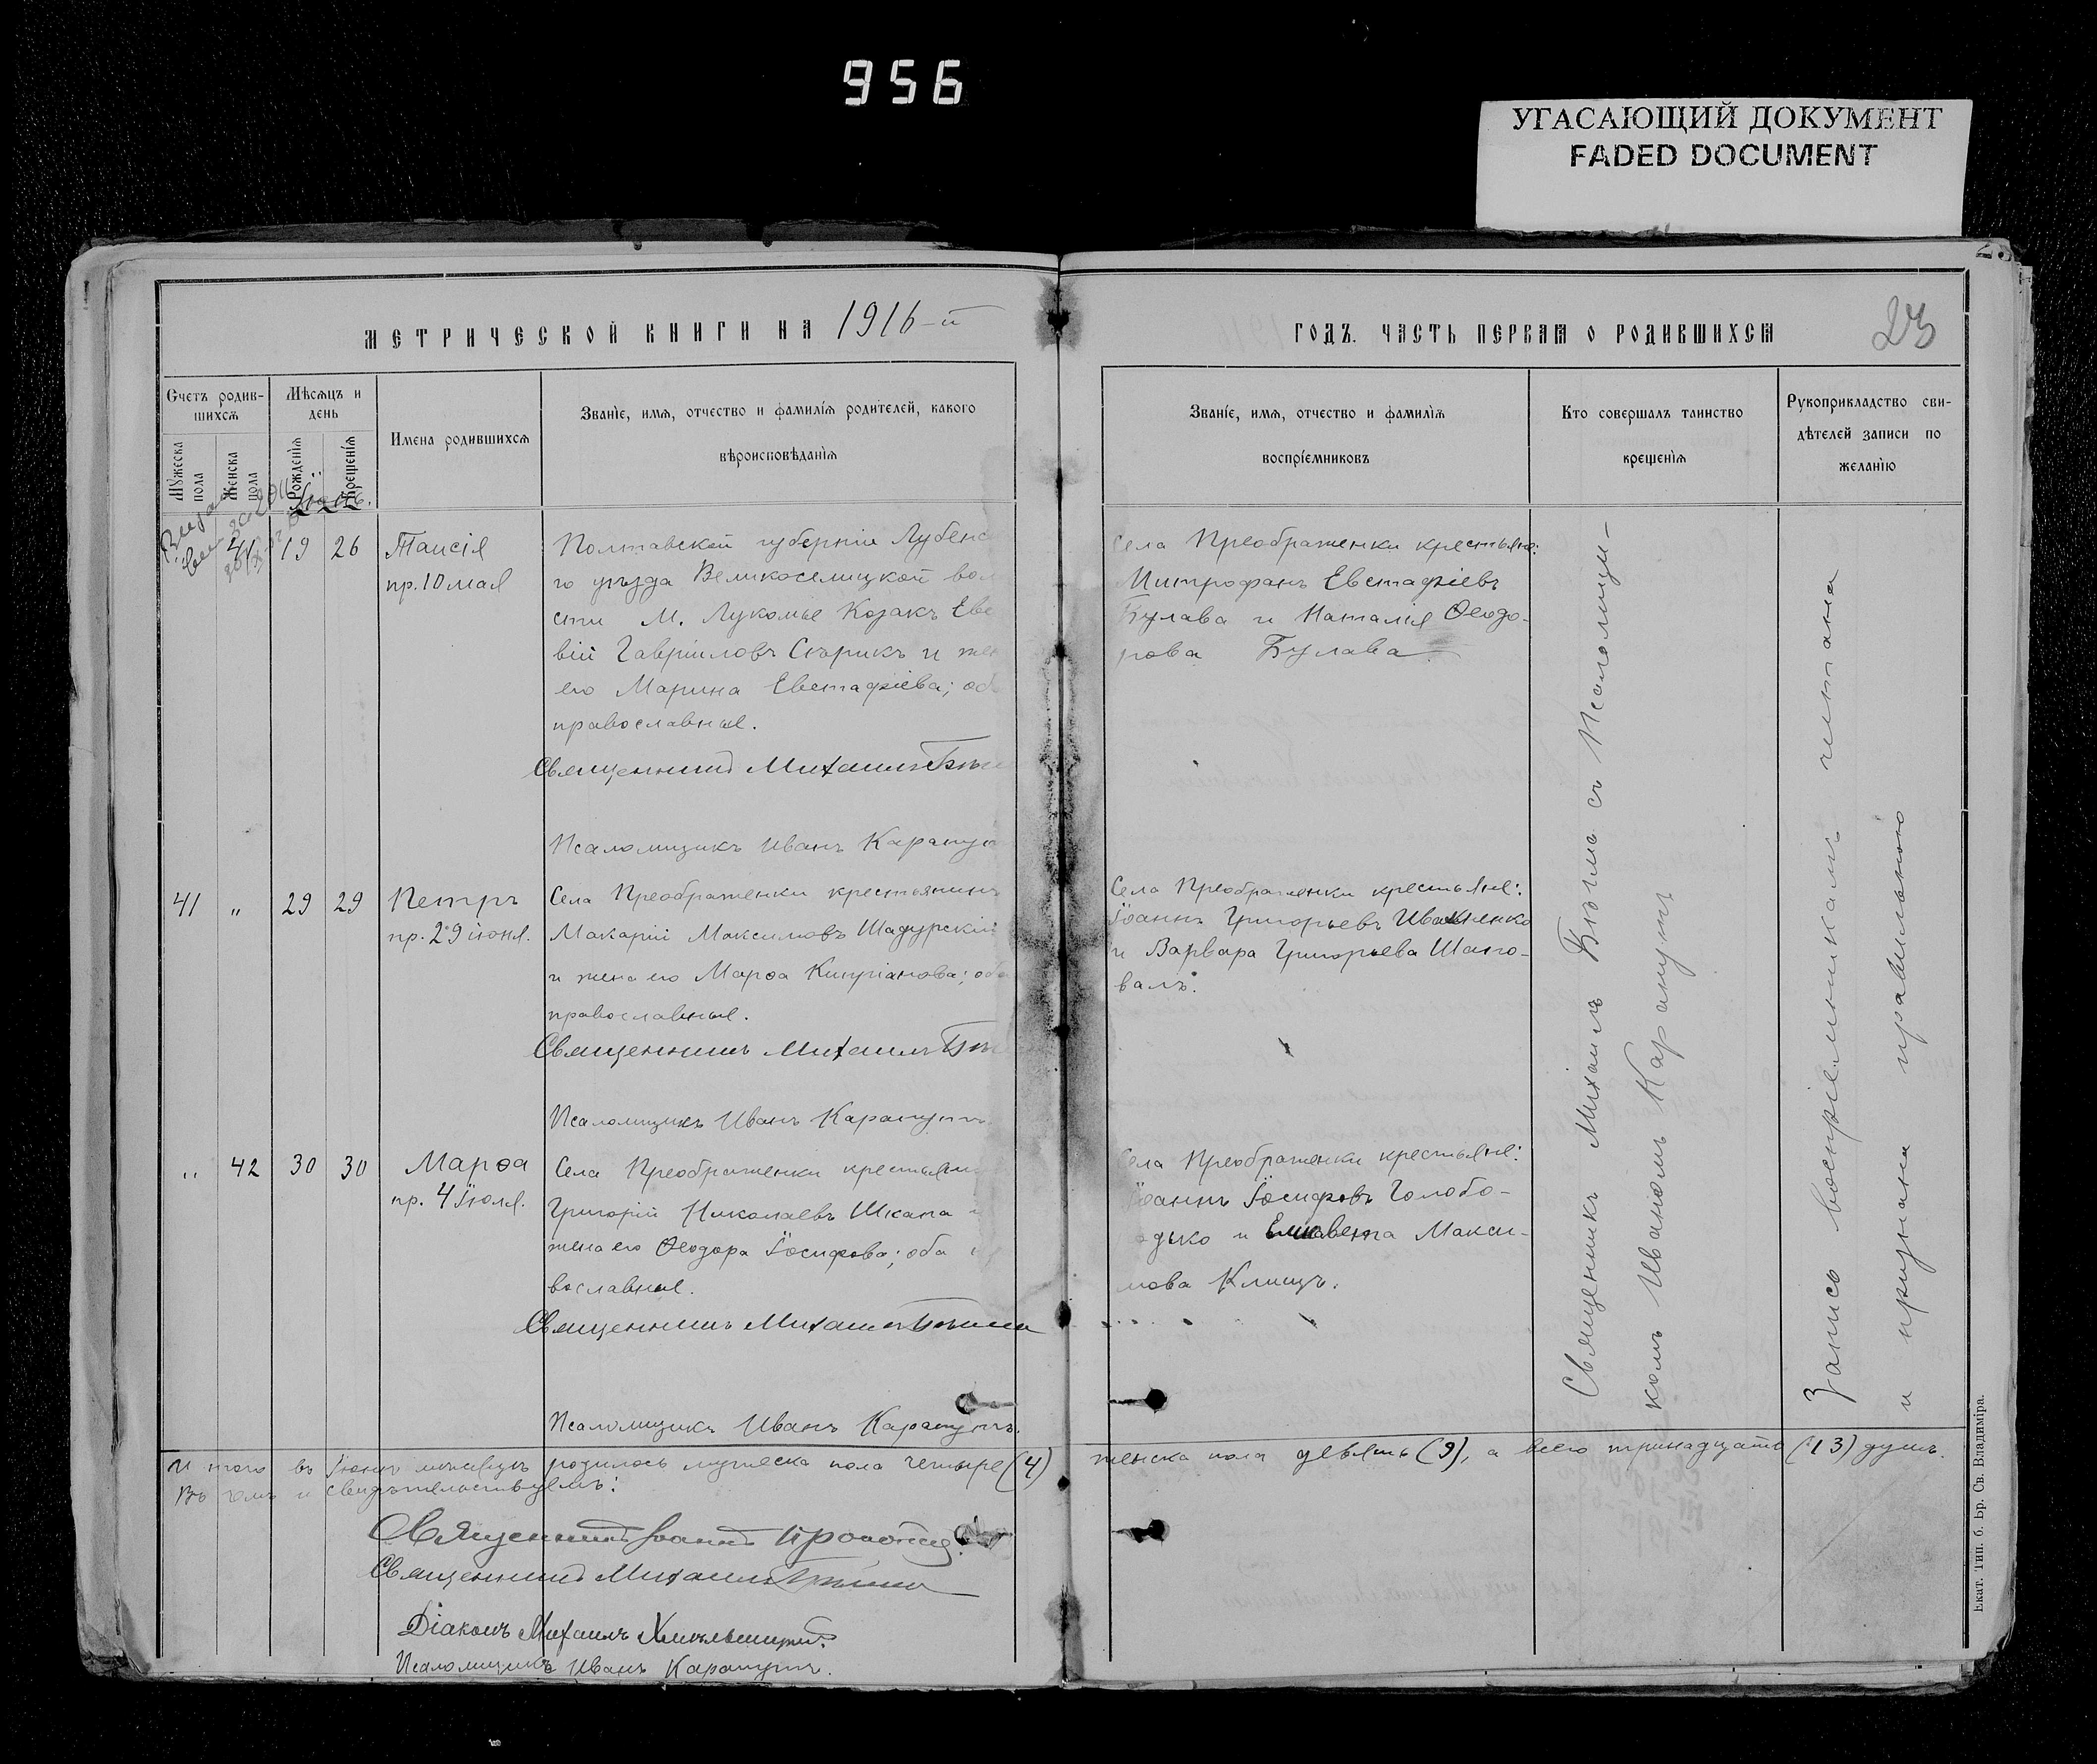 956
УГАСАЮЩИЙ ДОКУМЕНТ
FADED DOCUMENT
МЕТРИЧЕСКОЙ КНИГИ НА 1916-й
ГОДЪ. ЧАСТЬ ПЕРВАЯ О РОДИВШИХСЯ
23
Счетъ родив-
шихся
Мужеска
пола
Женска
пола
Мѣсяцъ и
день
Рожденія
Крещенія
Имена родившихся
Званіе, имя, отчество и фамилія родителей, какого
вѣроисповѣданія
Званіе, имя, отчество и фамилія
воспріемниковъ
Кто совершалъ таинство
крещенія
Рукоприкладство сви-
дѣтелей записи по
желанію
Іюнь.
41 19 26
Таисія
пр. 10 мая
Полтавской губерніи Лубенс
го уѣзда Великоселицкой вол
сти М. Лукомье Козакъ Евс
вій Гавріиловъ Скрикъ и жен
его Марина Евстафіева; об
православные.
Священникъ Михаилъ
Псаломщикъ Иванъ Карапут
Села Преображенки крестьяне:
Митрофанъ Евстафіевъ
Булава и Наталія Ѳеодо-
рова Булава.
41 " 29 29
Петръ
пр. 29 іюня.
Села Преображенки крестьянинъ
Макарій Максимовъ Шадурскій
и жена его Марѳа Кипріанова; оба
православные.
Священникъ Михаилъ
Псаломщикъ Иванъ Карапутъ
Села Преображенки крестьяне:
Іоаннъ Григорьевъ Иваненко
и Варвара Григорьева Шапо-
валъ.
" 42 30 30
Марѳа
пр. 4 Іюля.
Села Преображенки крестьянин
Григорій Николаевъ Шкапа
жена его Ѳеодора Іосифова; оба
вославные.
Священникъ Михаилъ
Псаломщикъ Иванъ Карапутъ.
Села Преображенки крестьяне:
Іоаннъ Іосифовъ Голобо-
одько и Елисавета Макси-
мова Клищъ.
Священникъ Михаилъ съ Псаломщи-
комъ Иваномъ Карапутъ
Запись воспріемникамъ читана
и признана правильною
И того въ Іюнѣ мѣсяцѣ родилось мужеска пола четыре (4) женска пола девять (9), а всего тринадцать (13) душъ.
Въ чемъ и свидѣтельствуемъ:
Священникъ Іоаннъ
Священникъ Михаилъ
Діаконъ Михаилъ Хмѣльницкій.
Псаломщикъ Иванъ Карапутъ.
Екат. Тип. б. Бр. Св. Владиміра.